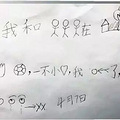 我和在
,一不小心,我了,
→xx 4月7日